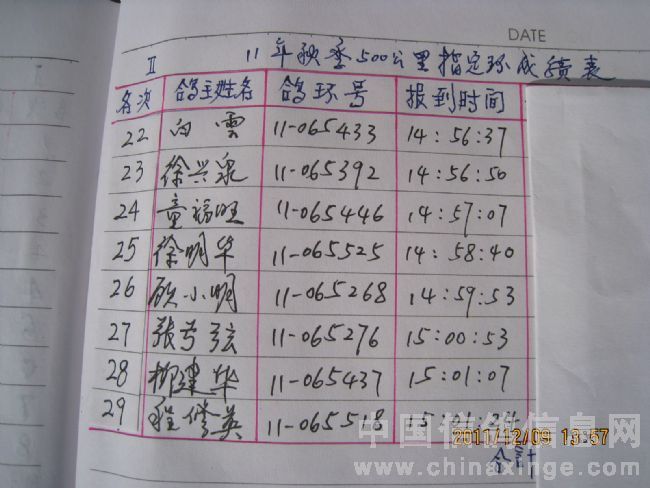 DATE
II 11年秋季500公里指定环成绩表
名次 鸽主姓名 鸽环号 报到时间
22 白雲 11-065433 14:56:37
23 徐兴泉 11-065392 14:56:50
24 童福旺 11-065446 14:57:07
25 徐明华 11-065525 14:58:40
26 顾小明 11-065268 14:59:53
27 张 弦 11-065276 15:00:53
28 柳建华 11-065437 15:01:07
29 程修英 11-065518 15:01:
中国信鸽信息网
2011/12/09
www.chinaxinge.com